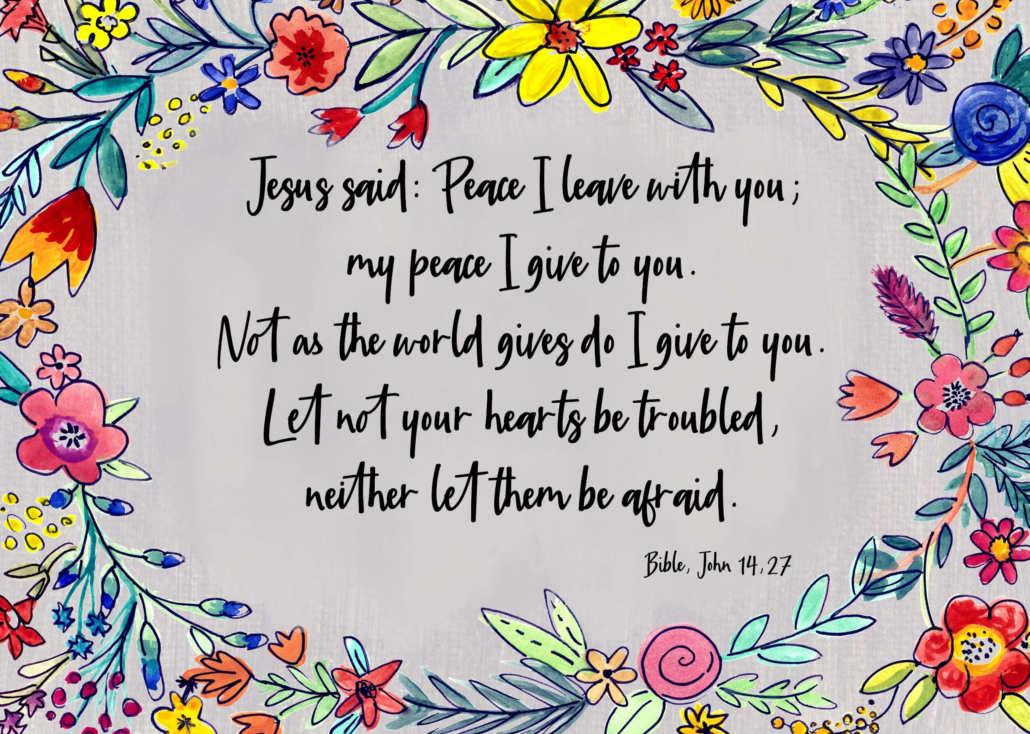 Jesus said: Peace I leave with you;
my peace I give to you.
Not as the world gives do I give to you.
Let not your hearts be troubled,
neither let them be afraid.
Bible, John 14,27